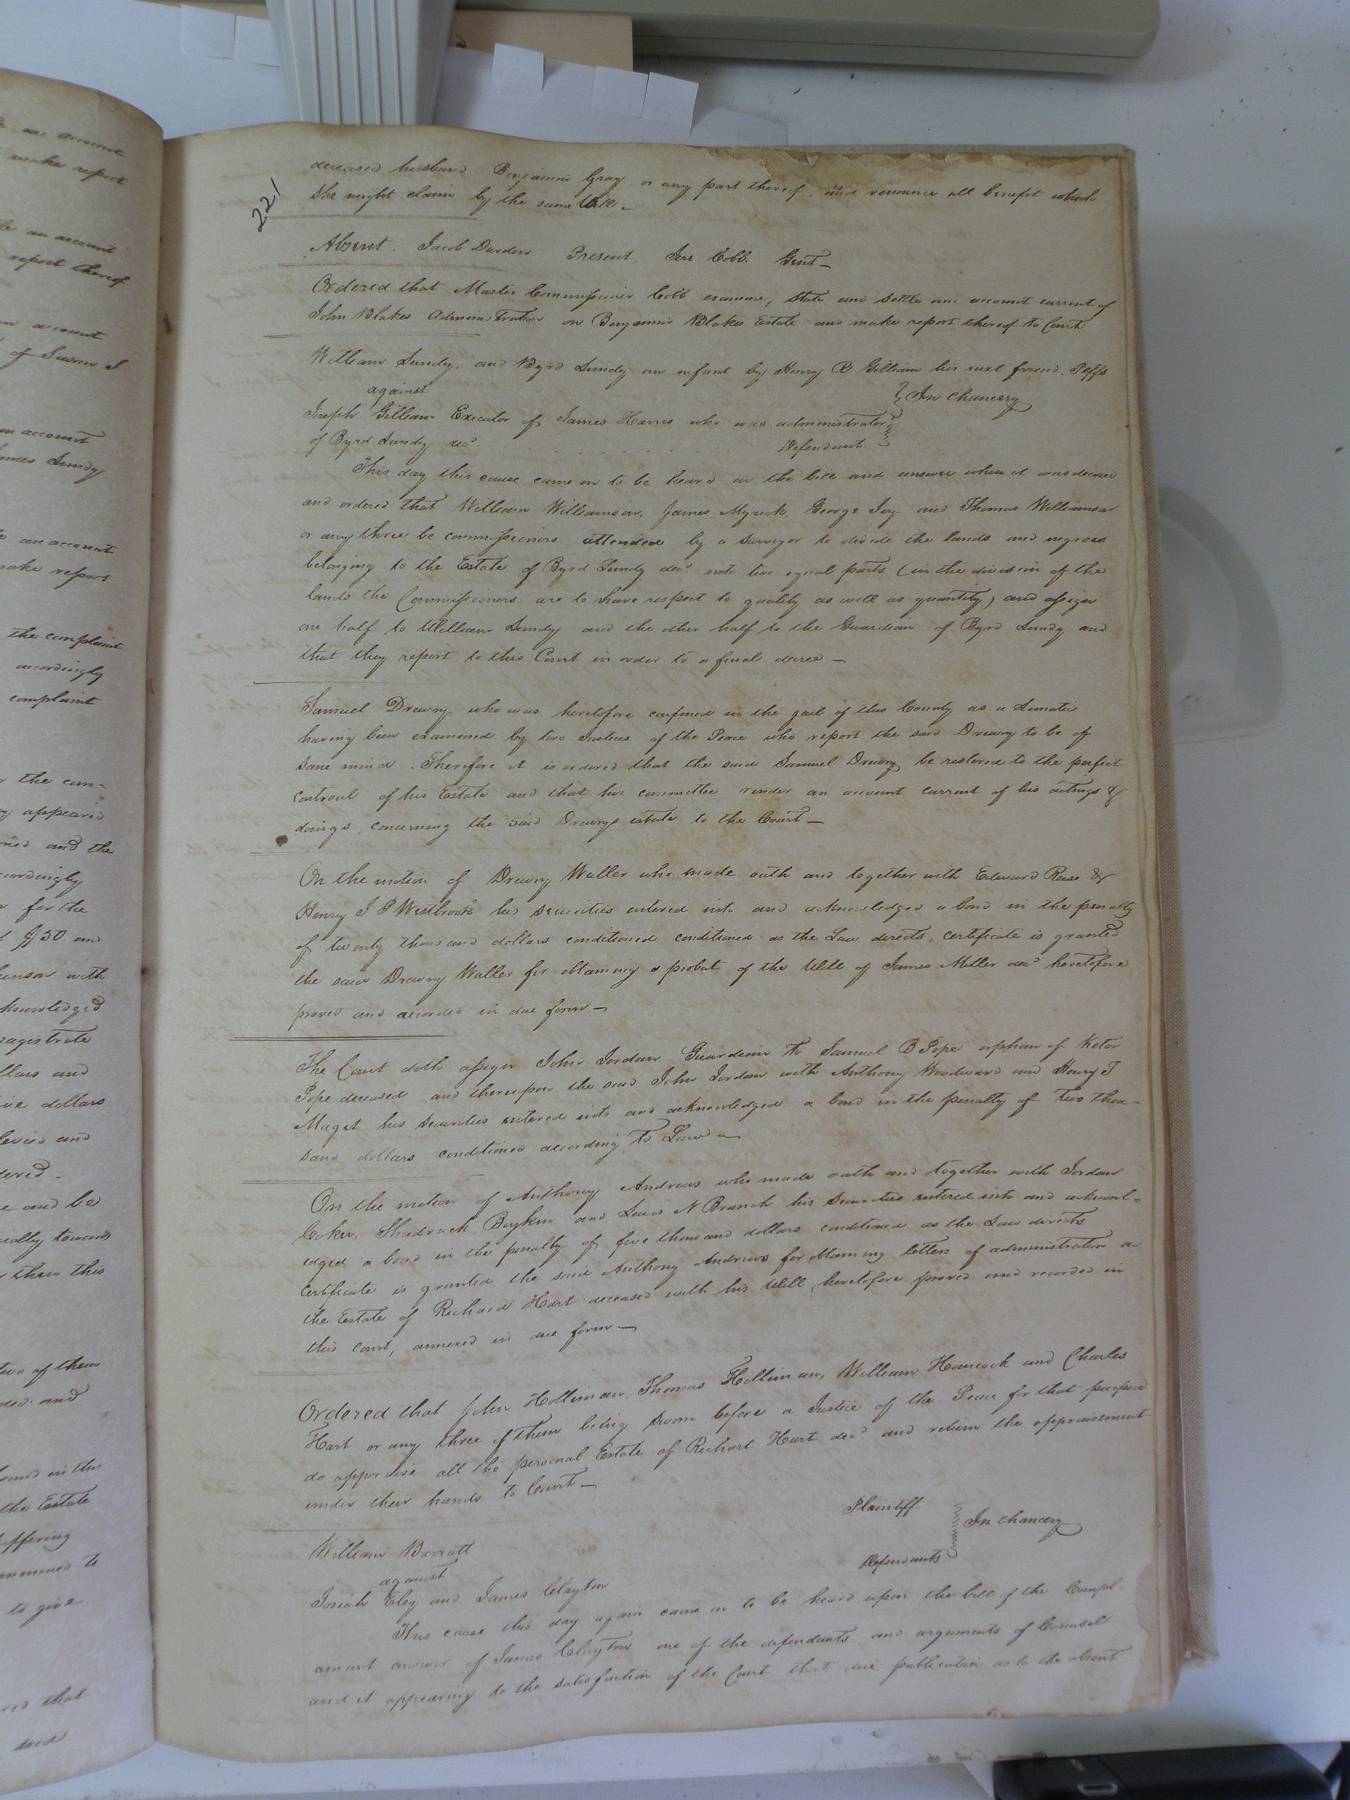 221
deceased husband Benjamin Gray or any part thereof, and renounce all benefit which
She might claim by the same Will.
Absent. Jacob Darden Present. Jere Cobb. Gent
Ordered that Master Commissioner Cobb examine, State and settle an account current of
John Blakes Administration on Benjamin Blakes Estate and make report thereof to Court
William Lundy, and Byrd Lundy an infant by Henry B Gilliam his next friend. Peffs
against
In Chancery
Joseph Gilliam Executor of James Harris who was administrator
of Byrd Lundy decd. Defendant
This day this cause came on to be heard on the bill and answer when it was decreed
and ordered that William Williamson, James Myrick, George Ivy and Thomas Williamson
or any three be commissioners attended by a Surveyor to divide the lands and negroes
belonging to the Estate of Byrd Lundy decd. into two equal parts (in the division of the
lands the Commissioners are to have respect to quality as well as quantity) and assign
one half to William Lundy and the other half to the Guardian of Byrd Lundy and
that they report to this Court in order to a final decree
Samuel Drewry who was heretofore confined in the jail of this County as a Lunatic
having been examined by two Justices of the Peace who report the said Drewry to be of
sane mind. Therefore it is ordered that the said Samuel Drewry be restored to the perfect
controul of his Estate and that his committee render an account current of his actings &
doings concerning the said Drewrys estate to the Court
On the motion of Drewry Waller who made oath and together with Edward Rese &
Henry J P Westbrook his securities entered into and acknowledged a bond in the penalty
of twenty thousand dollars conditioned conditioned as the Law directs, certificate is granted
the said Drewry Waller for obtaining a probat of the Will of James Miller decd. heretofore
proved and recorded in due form
The Court doth assign John Jordan Guardian to Samuel B Pope orphan of
Pope deceased and thereupon the said John Jordan with Anthony Woodward and Henry T
Maget his securities entered into and acknowledged a bond in the penalty of Two thou-
sand dollars conditioned according to Law
On the motion of Anthony Andrews who made oath and together with Jordan
Coker, Shadrach Boykin and Lewis N Branch his Securities entered into and acknowl-
edged a bond in the penalty of five thousand dollars conditioned as the Law directs
Certificate is granted the said Anthony Andrews for obtaining letters of administration on
the Estate of Richard Hart deceased with his Will, heretofore proved and recorded in
this court, annexed in due form
Ordered that John Holliman, Thomas Holliman, William Hancock and Charles
Hart or any three of them being sworn before a Justice of the Peace for that purpose
do appraise all the personal Estate of Richart Hart decd. and return the appraisement
under their hands to Court
William Barratt Plaintiff
against
In Chancery
Josiah Eley and James Clayton Defendants
This cause this day again came on to be heard upon the bill of the Compl
ainant answer of James Clayton one of the defendants and arguments of Counsel
and it appearing to the satisfaction of the Court that due publication as to the absent